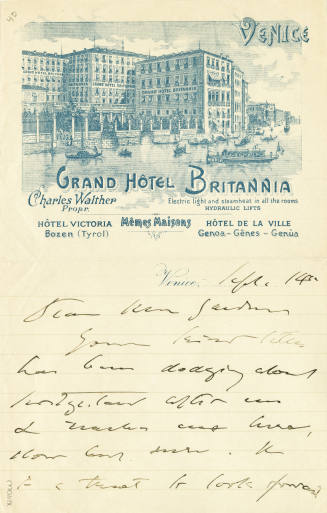 VENICE
GRAND HÔTEL BRITANNIA
GRAND HÔTEL BRITANNIA
GRAND HÔTEL BRITANNIA
Charles Walther
Propr.
Electric light and steamheat in all the rooms
HYDRAULIC LIFTS
HÔTEL VICTORIA
Bozen (Tyrol)
Mêmes Maisons
HÔTEL DE LA VILLE
Genoa - Gênes - Genua
Venice, Sept. 14
Dear Mrs Gardner
Your kind letter
has been dodging about
Switzerland after me
& reaches me here,
is a treat to look forward